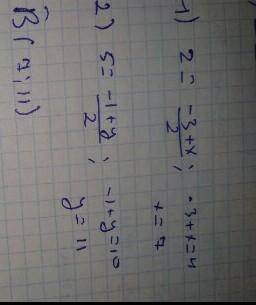 1) 2 = (-3+x)/2 ; -3+x=4
x=7
2) 5 = (-1+y)/2 ; -1+y=10
y=11
B(7;11)